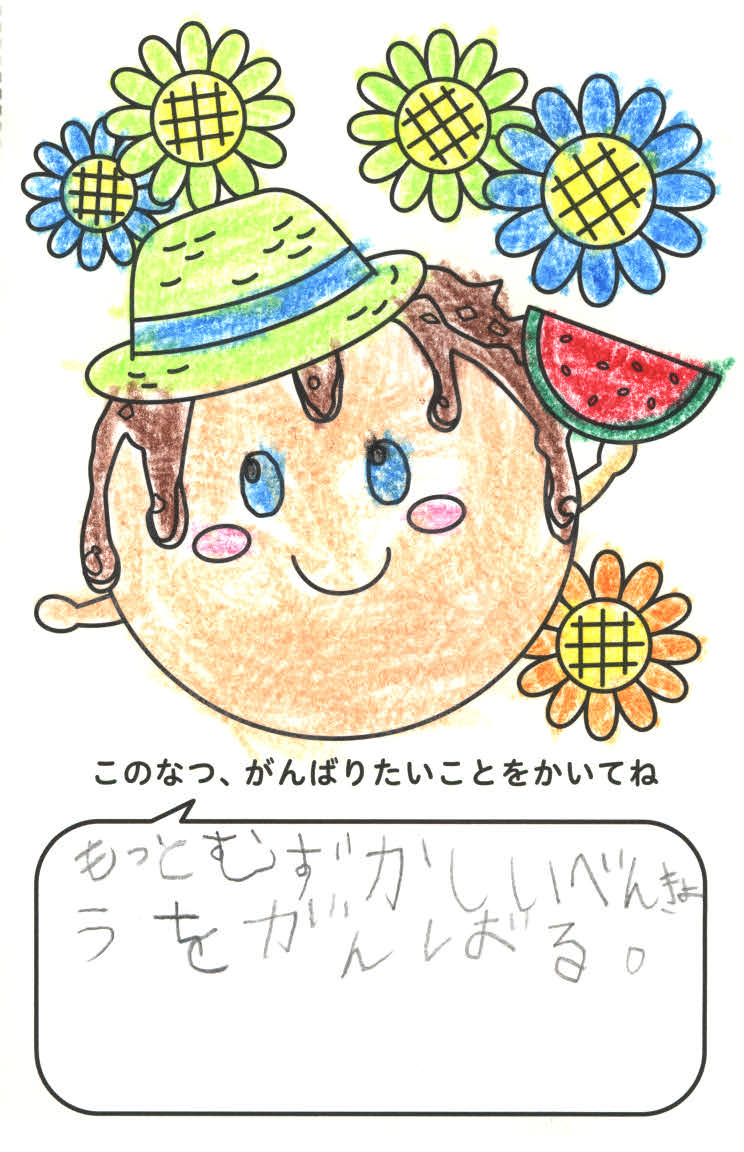 このなつ、がんばりたいことをかいてね
もっとむずかしいべんきょ
うをがんばる。